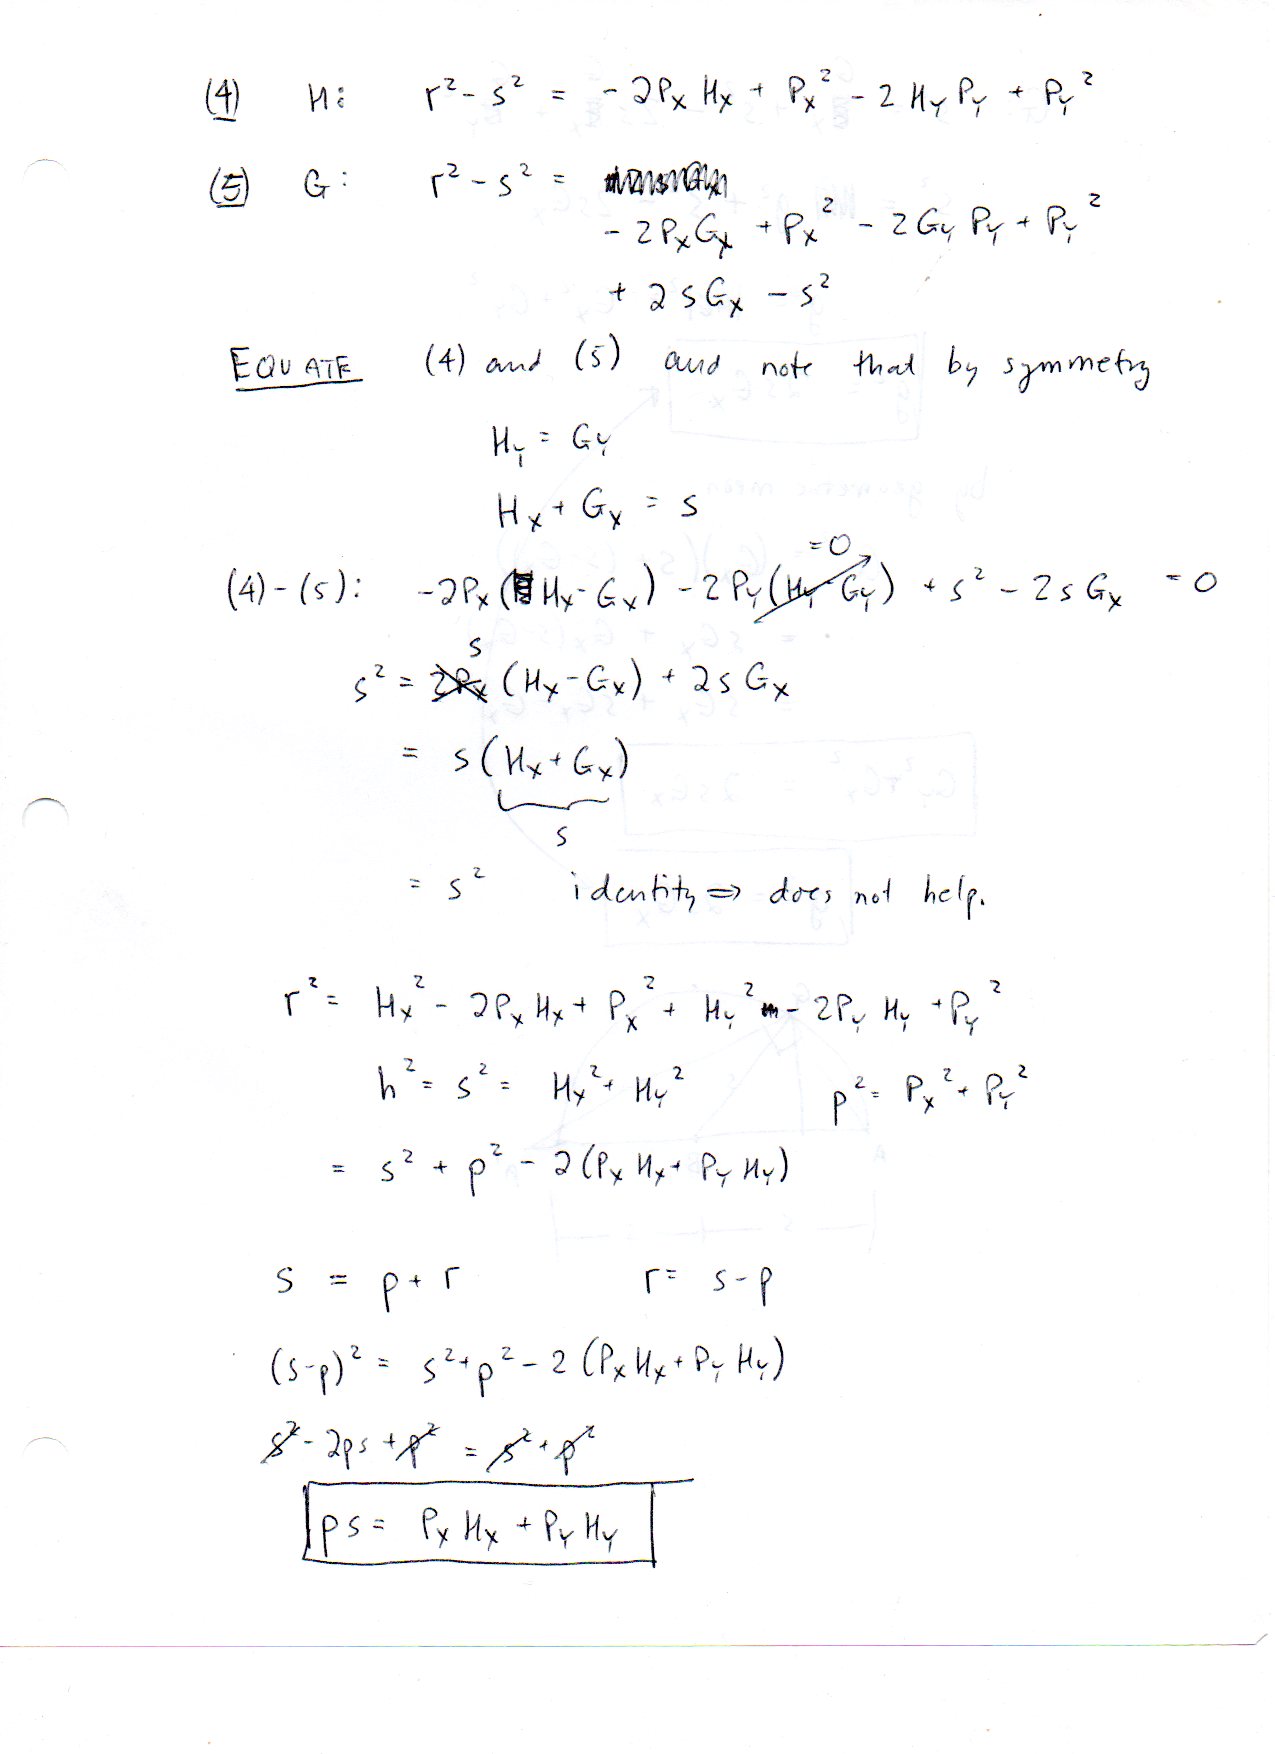 (4) H: r² - s² = - 2P_X H_X + P_X² - 2 H_Y P_Y + P_Y²
(5) G: r² - s² =
- 2P_X G_X + P_X² - 2 G_Y P_Y + P_Y²
+ 2 s G_X - s²
EQUATE (4) and (5) and note that by symmetry
H_Y = G_Y
H_X + G_X = s
= 0
(4) - (5): -2P_X (H_X - G_X) - 2 P_Y (H_Y - G_Y) + s² - 2 s G_X = 0
s
s² = 2P_X (H_X - G_X) + 2 s G_X
= s (H_X + G_X)
s
= s² identity ⇒ does not help.
r² = H_X² - 2P_X H_X + P_X² + H_Y² - 2P_Y H_Y + P_Y²
h² = s² = H_X² + H_Y² p² = P_X² + P_Y²
= s² + p² - 2 (P_X H_X + P_Y H_Y)
s = p + r r = s - p
(s-p)² = s² + p² - 2 (P_X H_X + P_Y H_Y)
s² - 2ps + p² = s² + p²
ps = P_X H_X + P_Y H_Y